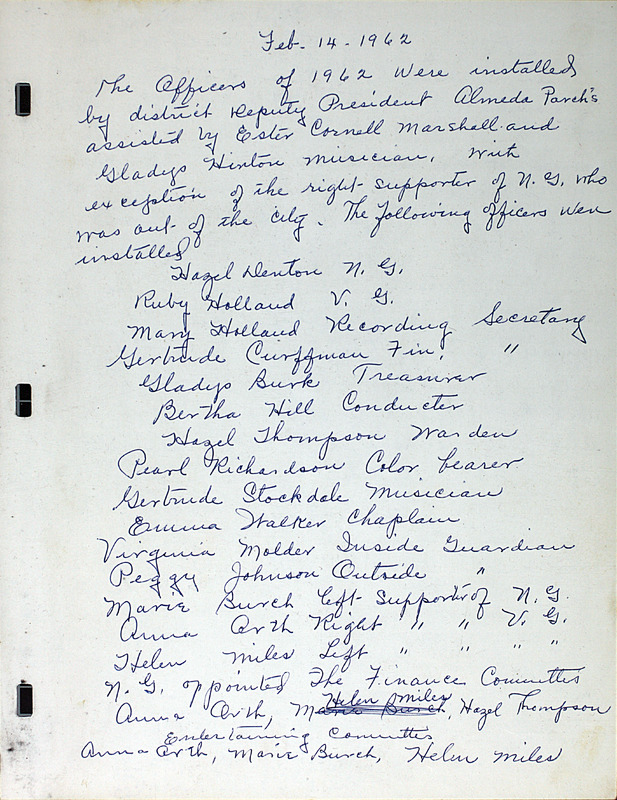 Feb. 14 - 1962
The Officers of 1962 Were installed
by district Deputy President Almeda Parch's
assisted by Ester Cornell Marshall and
Gladys Hinton musician, with
exception of the right supporter of N. G. who
was out of the city. The following officers were
installed
Hazel Denton N. G.
Ruby Holland V. G.
Mary Holland Recording Secretary
Gertrude Curffman Fin. "
Gladys Burk Treasurer
Bertha Hill Conductor
Hazel Thompson Warden
Pearl Richardson Color bearer
Gertrude Stockdale Musician
Emma Walker Chaplain
Virginia Molder Inside Guardian
Peggy Johnson Outside "
Marie Burch left Supporter of N. G.
Anna Orth Right " " V. G.
Helen Miles Left " " " "
N. G. appointed The Finance Committee
Helen Miles
Anna Orth, Marie Burch, Hazel Thompson
Entertaining Committee
Anna Orth, Marie Burch, Helen Miles